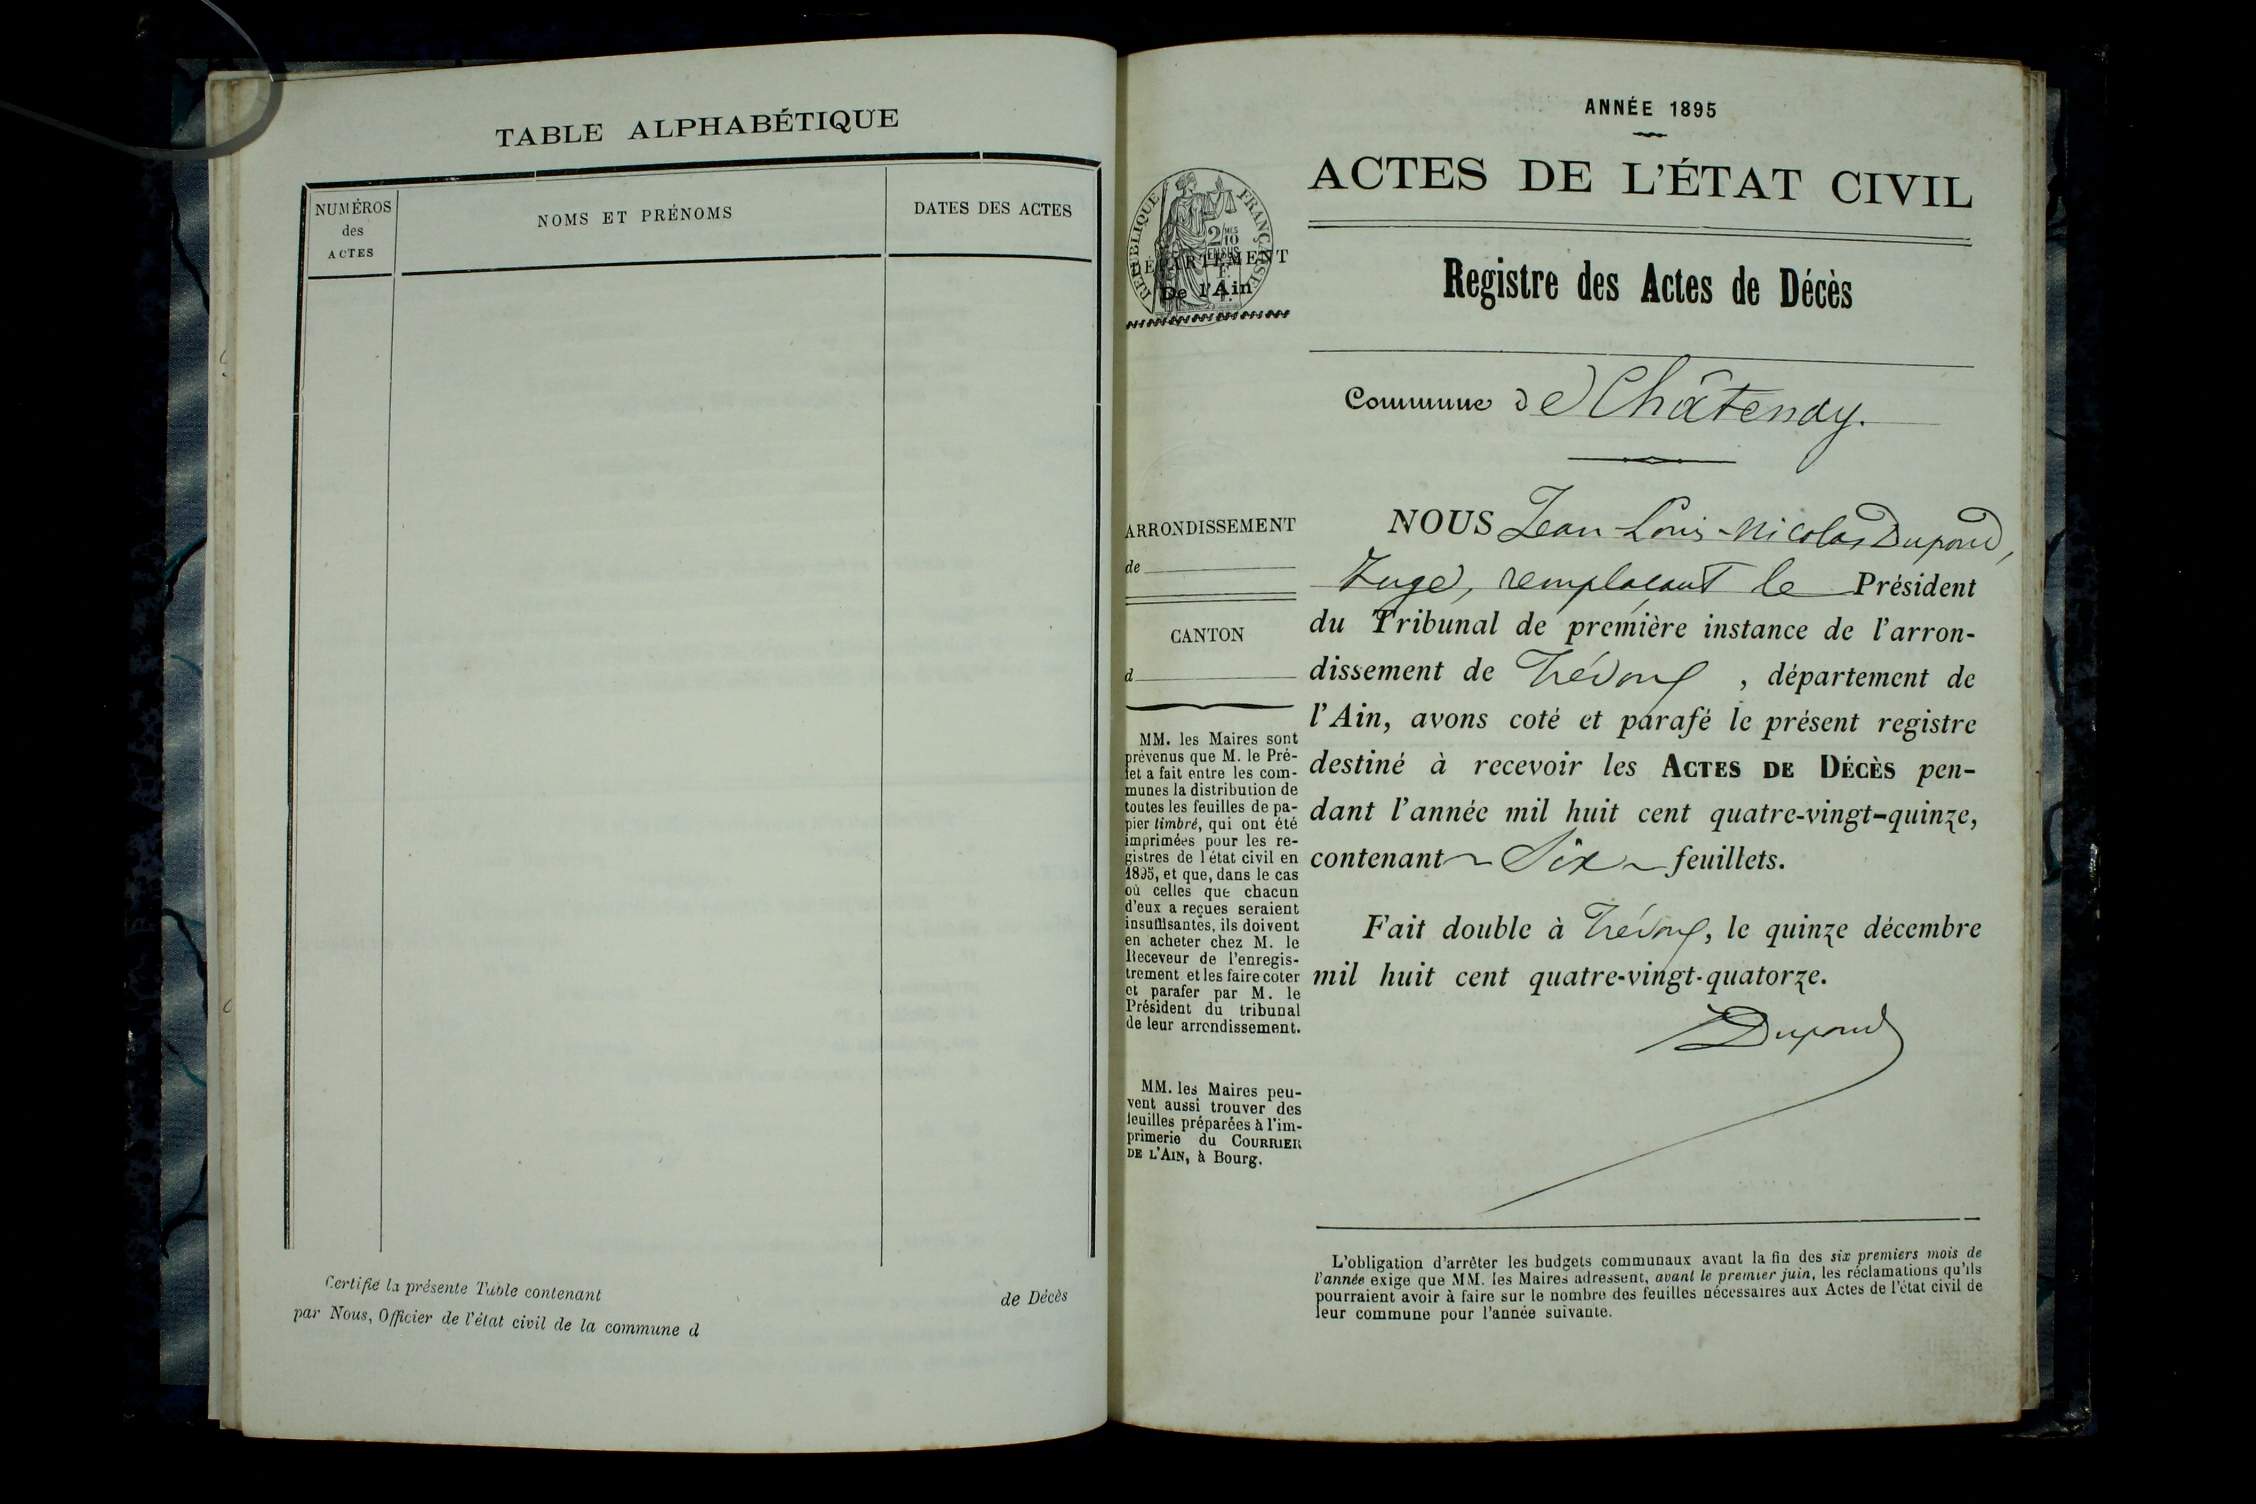 TABLE ALPHABÉTIQUE
NUMÉROS
des
ACTES
NOMS ET PRÉNOMS
DATES DES ACTES
Certifié la présente Table contenant
de Décès
par Nous, Officier de l'état civil de la commune d
ANNÉE 1895
ACTES DE L'ÉTAT CIVIL
RÉPUBLIQUE FRANÇAISE
2/10
MES
EN SUS
DÉPARTEMENT
De l'Ain
Registre des Actes de Décès
Commune de Châtenay.
ARRONDISSEMENT
de
CANTON
d
MM. les Maires sont
prévenus que M. le Pré-
fet a fait entre les com-
munes la distribution de
toutes les feuilles de pa-
pier timbré, qui ont été
imprimées pour les re-
gistres de l'état civil en
1895, et que, dans le cas
où celles que chacun
d'eux a reçues seraient
insuffisantes, ils doivent
en acheter chez M. le
Receveur de l'enregis-
trement et les faire coter
et parafer par M. le
Président du tribunal
de leur arrondissement.
MM. les Maires peu-
vent aussi trouver des
feuilles préparées à l'im-
primerie du COURRIER
DE L'AIN, à Bourg.
NOUS Jean-Louis-Nicolas Dupond,
Juge, remplaçant le Président
du Tribunal de première instance de l'arron-
dissement de Trévoux, département de
l'Ain, avons coté et parafé le présent registre
destiné à recevoir les ACTES DE DÉCÈS pen-
dant l'année mil huit cent quatre-vingt-quinze,
contenant ~ Six ~ feuillets.
Fait double à Trévoux, le quinze décembre
mil huit cent quatre-vingt-quatorze.
Dupond
L'obligation d'arrêter les budgets communaux avant la fin des six premiers mois de
l'année exige que MM. les Maires adressent, avant le premier juin, les réclamations qu'ils
pourraient avoir à faire sur le nombre des feuilles nécessaires aux Actes de l'état civil de
leur commune pour l'année suivante.